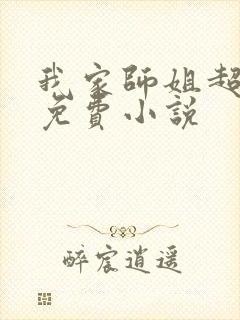 我家師姐超
免費小說
醉宸逍遥